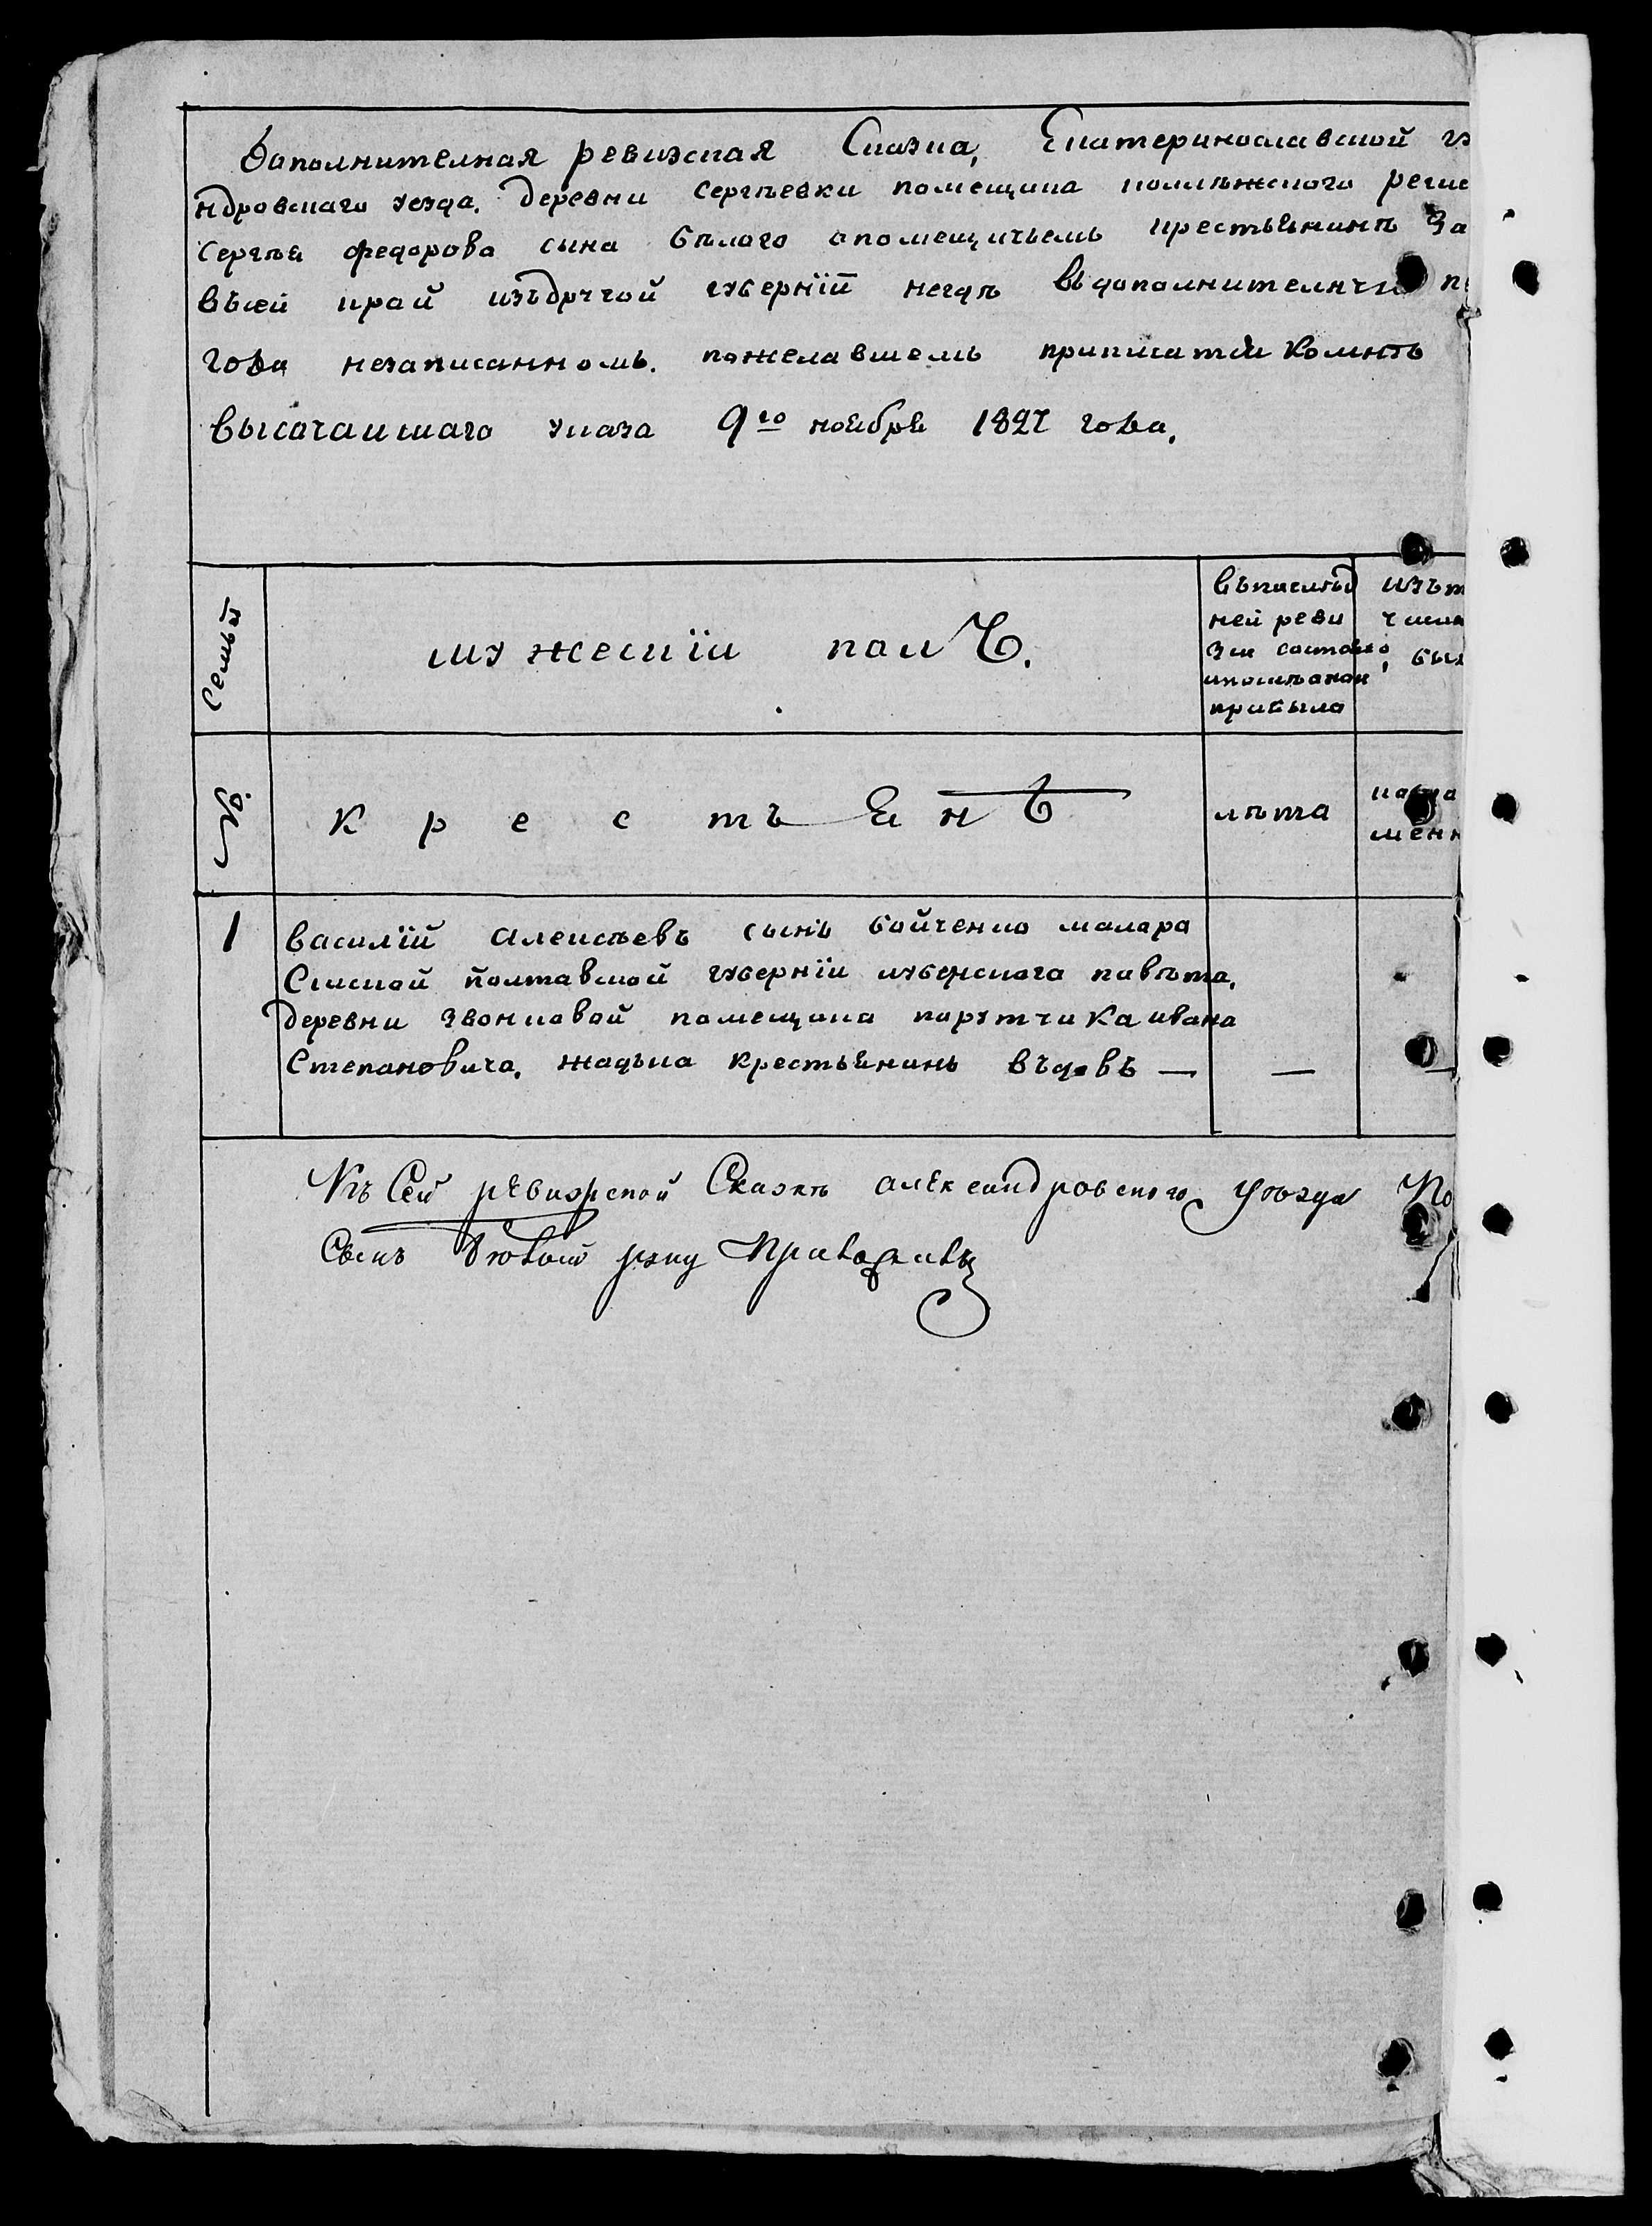 Дополнителная ревизская Сказка, Екатеринославской гу
ндровскаго уезда. деревни Сергѣевки помещика колѣжского реги
Сергѣя федорова сына Бѣлого опомещичьемъ крестьянинѣ За
вьсей край изъдругой губерніи негдѣ въдополнителн
года незаписанномъ. пожелавшемъ приписатси комнѣ
высочаишаго указа 9го ноября 1827 года.
Семьи
мужескїи полъ.
въпослѣд
ней реви
зіи состояло
ипослѣонои
прибыло
изът
числа
был
№.
крестьЯнЪ
лѣта
менн
1
василїй алексѣевъ сынъ бойченко малоро
Сиской полтавской губернїи лубенского повѣта,
деревни звонковой помещика порутчика ивана
Степановича, жадька крестьянинъ въдовъ — — —
Къ Сей ревизской Сказкѣ александровского уѣзда По
Сынъ Бѣлой руку Приложилъ